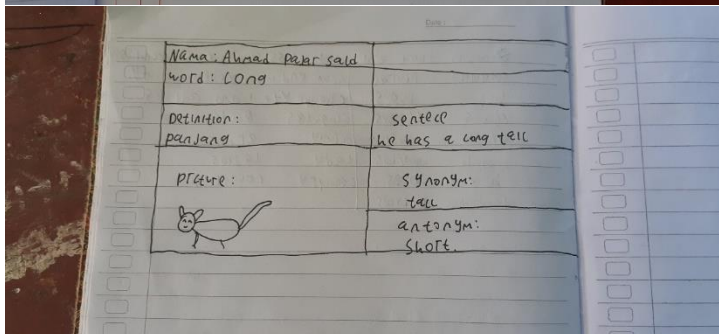 Date:
Nama: Ahmad Pajar Said
word: Long
Definition:
panjang
sentece
he has a long tail
picture:
synonym:
tall
antonym:
short.